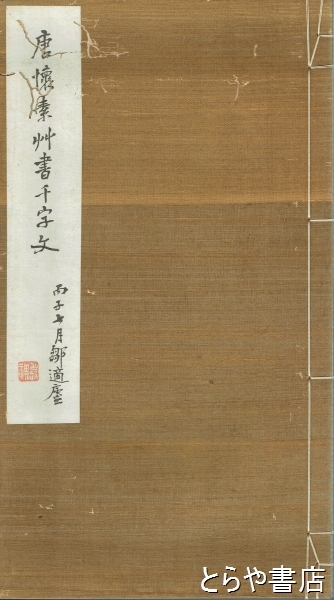 唐懷素艸書千字文
丙子七月鄒適廬
とらや書店